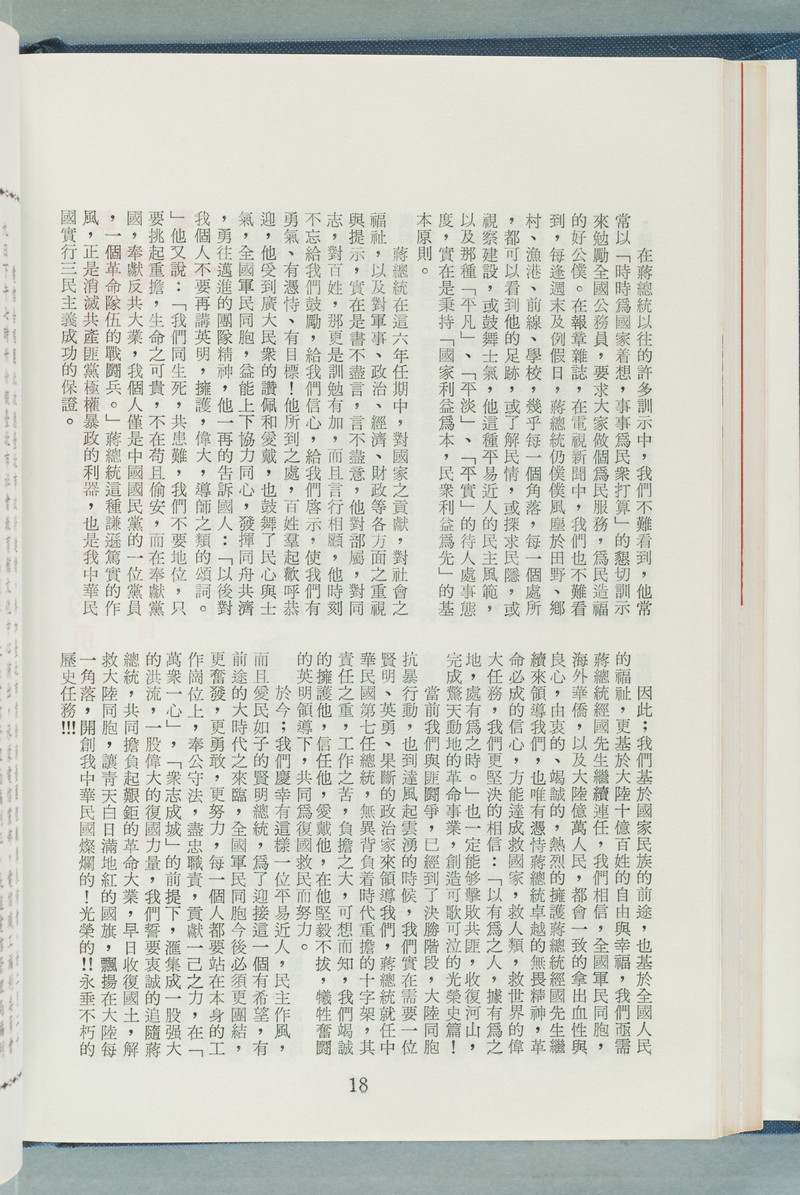 在蔣總統以往的許多訓示中，我們不難看到，他常
常以「時時爲國家着想，事事爲民衆打算」的懇切訓示
來勉勵全國公務員，要求大家做個爲民服務，爲民造福
的好公僕。在報章雜誌，在電視新聞中，我們也不難看
到，每逢週末及例假日，蔣總統仍僕僕風塵於田野、鄉
村、漁港、前線、學校，幾乎每一個角落，每一個處所
，都可以看到他的足跡，或了解民情，或探求民隱，或
視察建設，或鼓舞士氣，他這種平易近人的民主風範，
以及那種「平凡」、「平淡」、「平實」的待人處事態
度，實在是秉持「國家利益爲本，民衆利益爲先」的基
本原則。
蔣總統在這六年任期中，對國家之貢獻，對社會之
福祉，以及對軍事、政治、經濟、財政等各方面之重視
與提示，實在是書不盡言，言不盡意，他對部屬，對同
志，對百姓，那更是訓勉有加，而且言行相顧，他時刻
不忘給我們鼓勵，給我們信心，給我們啓示，使我們有
勇氣、有憑恃、有目標！他所到之處，百姓羣起歡呼恭
迎，他受到廣大民衆的讚佩和愛戴，也鼓舞了民心與士
氣，全國軍民同胞，益能上下協力同心，發揮同舟共濟
，勇往邁進的團隊精神，他一再的告訴國人：「以後對
我個人不要再講英明，擁護，偉大，導師之類的頌詞。
」他又說：「我們同生死，共患難，我們不要地位，只
要挑起重擔，生命之可貴，不在苟且偷安，而在奉獻黨
國，奉獻反共大業，我個人僅是中國國民黨的一位黨員
，一個革命隊伍的戰鬪兵。」蔣總統這種謙遜篤實的作
風，正是消滅共產匪黨極權暴政的利器，也是我中華民
國實行三民主義成功的保證。
因此；我們基於國家民族的前途，也基於全國人民
的福祉，更基於大陸十億百姓的自由與幸福，我們亟需
蔣總統經國先生繼續連任，我們相信，全國軍民同胞，
海外華僑，以及大陸億萬人民，都會一致的拿出血性與
良心，由衷的、竭誠的，熱烈的擁護蔣總統經國先生繼
續來領導我們，也唯有憑恃蔣總統卓越的無畏精神，革
命必成的信心，方能達成救國家，救人類，救世界的偉
大任務，我們更堅決的相信：「以有爲之人，據有爲之
地，處有爲之時。」也一定能够擊敗共匪，收復河山，
完成驚天動地的革命事業，創造可歌可泣的光榮史篇！
當前我們與匪鬪爭，已經到了決勝階段，大陸同胞
抗暴行動，也到達風起雲湧的時候，我們實在需要一位
賢明、英勇、果斷的政治家來領導我們，蔣總統就任中
華民國第七任總統，無異背負着時代重擔的十字架，其
責任之重，工作之苦，負擔之大，可想而知，我們竭誠
的擁護他，信任他，愛戴他，在他堅毅不拔，犧牲奮鬪
的英明領導下，共同爲復國救民而努力。
於今；我們慶幸有這樣一位平易近人，民主作風，
而且愛民如子的賢明總統，爲了迎接這一個有希望，有
前途的大時代之來臨，全國軍民同胞今後必須更團結，
更奮發，更勇敢，更努力，每一個人都要站在本身的工
作崗位上，奉公守法，盡忠職責，貢獻一己之力，在「
萬衆一心」，「衆志成城」的前提下，滙集成一股强大
的洪流，一股偉大的復國力量，我們誓要衷誠的追隨蔣
總統，共同擔負起艱鉅的革命大業，早日收復國土，解
救大陸同胞，讓靑天白日滿地紅的國旗，飄揚在大陸每
一角落，開創我中華民國燦爛的！光榮的!!永垂不朽的
歷史任務!!!
18